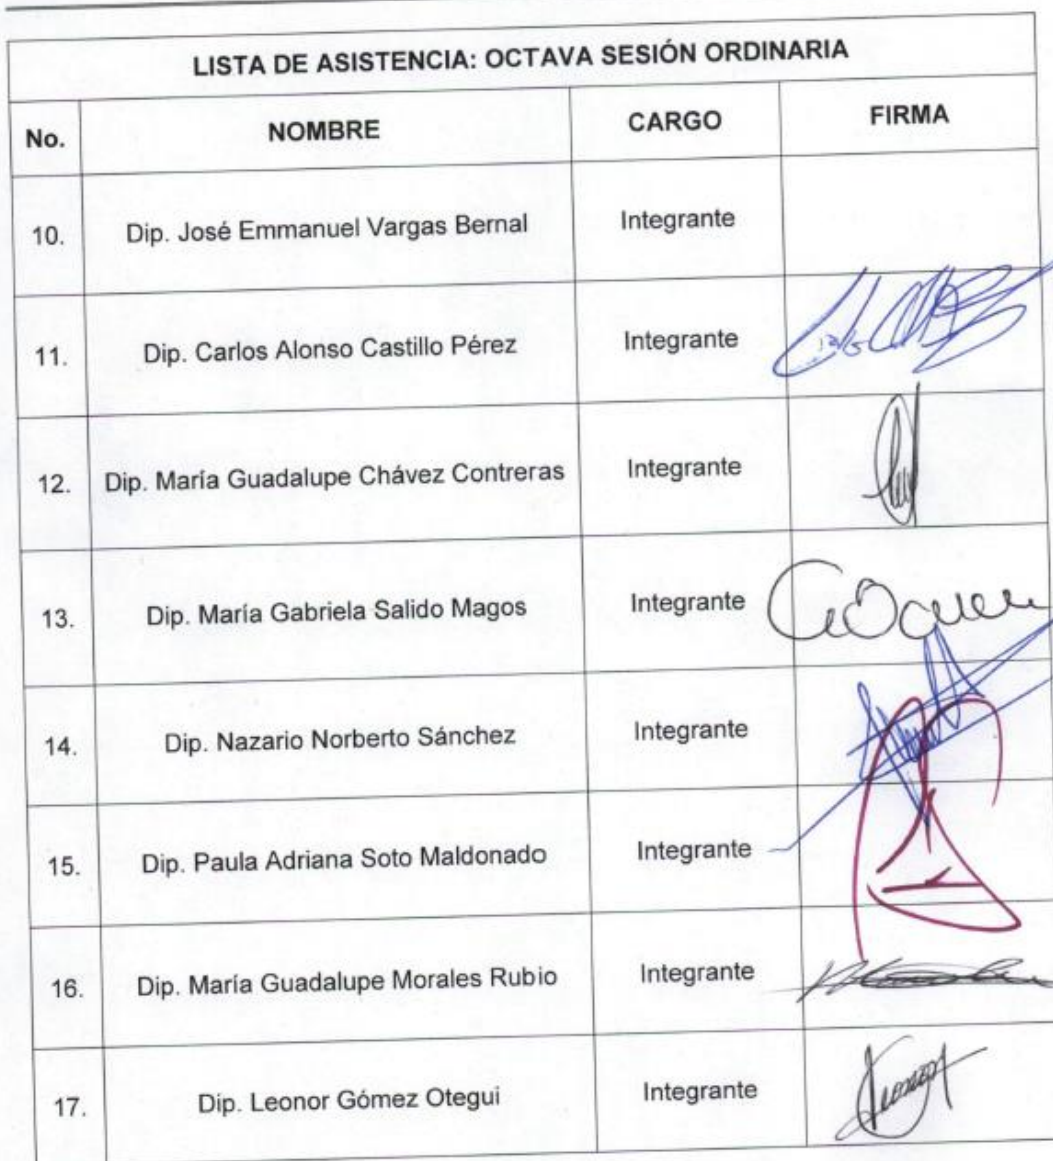 LISTA DE ASISTENCIA: OCTAVA SESIÓN ORDINARIA
No. NOMBRE CARGO FIRMA
10. Dip. José Emmanuel Vargas Bernal Integrante
11. Dip. Carlos Alonso Castillo Pérez Integrante
12. Dip. María Guadalupe Chávez Contreras Integrante
13. Dip. María Gabriela Salido Magos Integrante
14. Dip. Nazario Norberto Sánchez Integrante
15. Dip. Paula Adriana Soto Maldonado Integrante
16. Dip. María Guadalupe Morales Rubio Integrante
17. Dip. Leonor Gómez Otegui Integrante